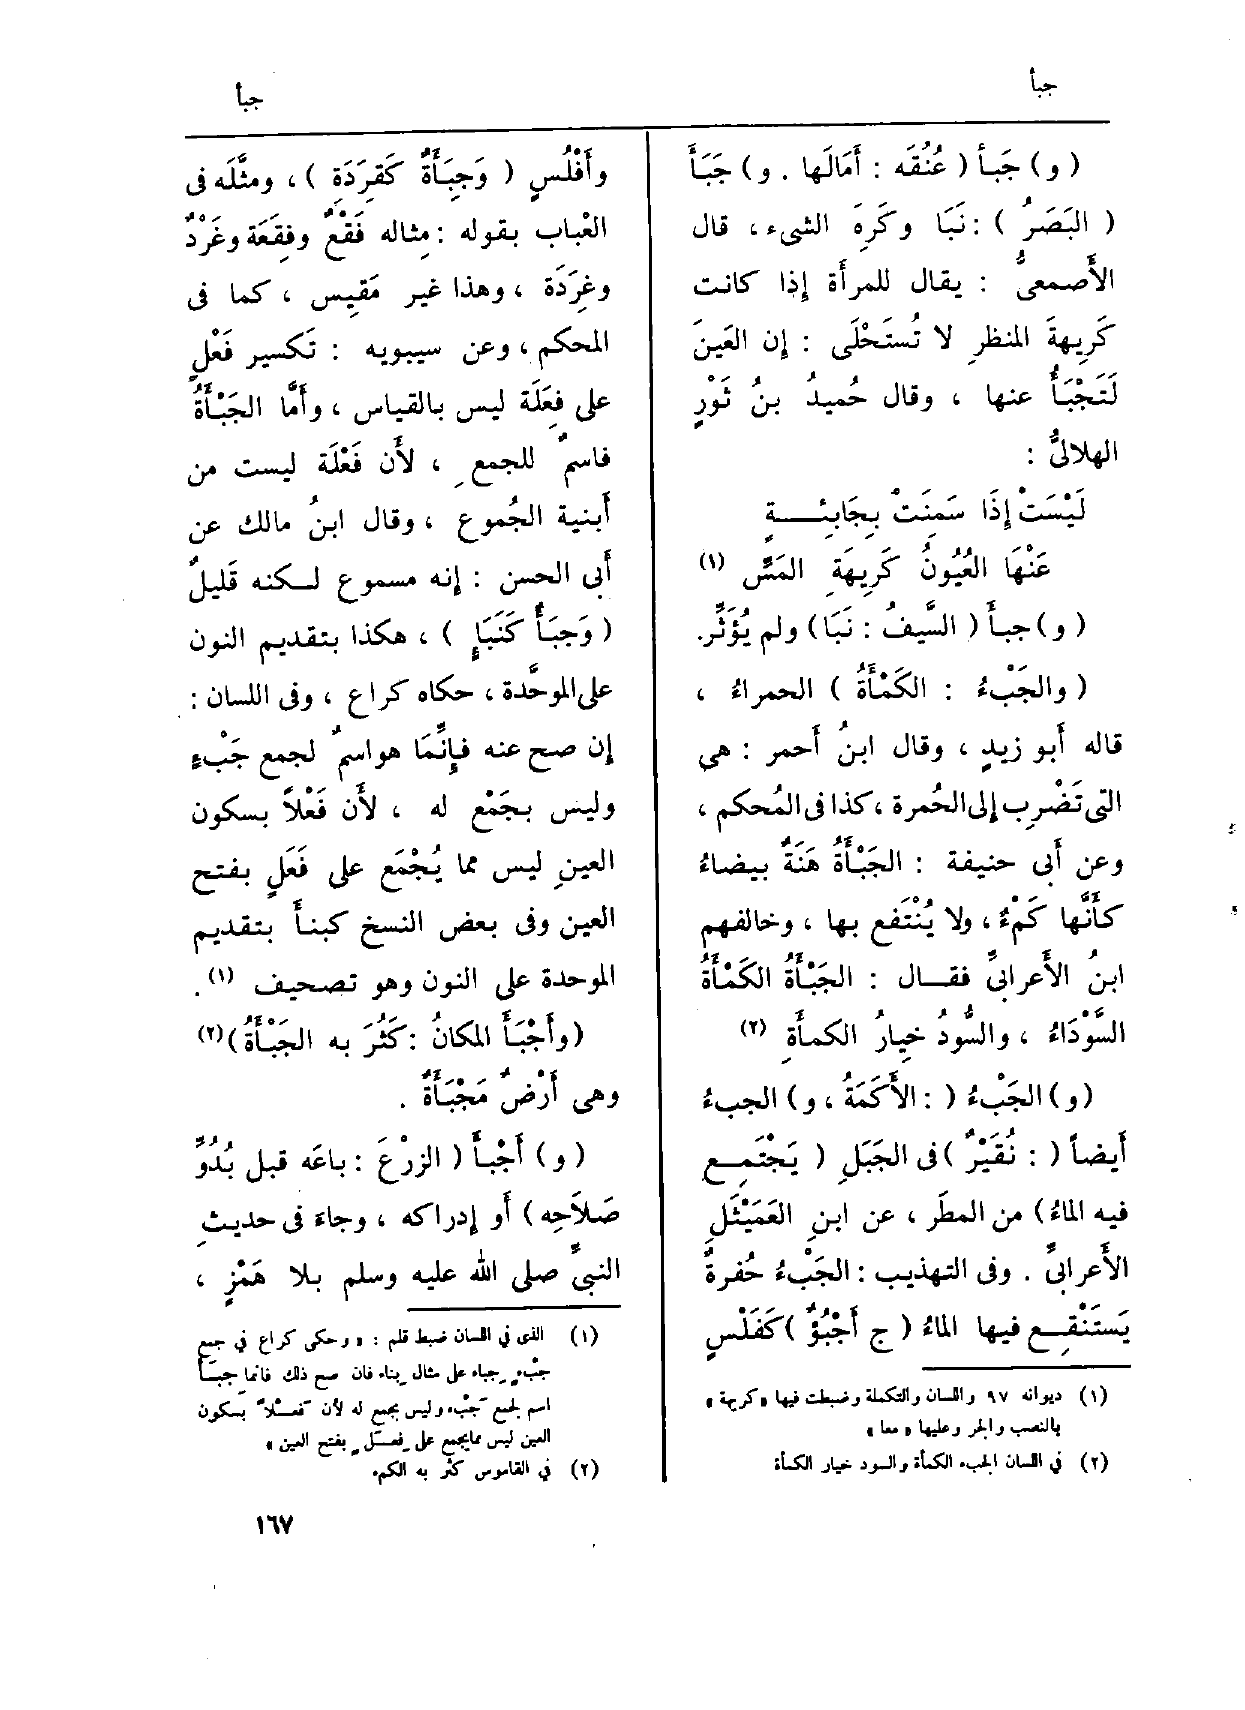 جبأ
جبأ
( و ) جَبَأَ ( عُنُقَه : أَمَالَها . و ) جَبَأَ
( البَصَرُ ) : نَبَا وكَرِهَ الشىء ، قال
الأَصمعىُّ : يقال للمرأة إذا كانت
كَرِيهةَ المنظرِ لا تُستَحْلَى : إن العَينَ
لَتَجْبَأُ عنها ، وقال حُميدُ بنُ ثَوْرٍ
الهلالىُّ :
لَيْسَتْ إِذَا سَمِنَتْ بِجَابِئَـــةٍ
عَنْهَا العُيُونُ كَرِيهَةِ المَسِّ (١)
( و ) جبأَ ( السَّيفُ : نَبَا ) ولم يُؤَثِّر.
( والجَبْءُ : الكَمْأَةُ ) الحمراءُ ،
قاله أبو زيدٍ ، وقال ابنُ أحمر : هى
التى تَضْرِب إلى الحُمرة ، كذا فى المُحكم ،
وعن أبى حنيفة : الجَبْأَةُ هَنَةٌ بيضاءُ
كأَنَّها كَمْءٌ ، ولا يُنْتَفَع بها ، وخالفهم
ابنُ الأَعرابىِّ فقـــال : الجَبْأَةُ الكَمْأَةُ
السَّوْدَاءُ ، والسُّودُ خِيارُ الكمأَةِ (٢)
( و ) الجَبْءُ ( : الأَكَمَةُ ، و ) الجبءُ
أيضاً ( : نُقَيْرٌ ) فى الجَبَلِ ( يَجْتَمِــع
فيه الماءُ ) من المطَر ، عن ابنِ العَمَيْثَلِ
الأَعرابىِّ . وفى التهذيب : الجَبْءُ حُفرةٌ
يَستَنْقِــع فيها الماءُ ( ج أَجْبُؤٌ ) كفَلْسٍ
(١) ديوانه ٩٧ واللسان والتكملة وضبطت فيها « كريهة »
بالنصب والجر وعليها « معا »
(٢) في اللسان الجبء الكمأة والسود خيار الكمأة
وأَفْلُسٍ ( وَجِبَأَةٌ كَقِرَدَةِ ) ، ومثَّلَه فى
العُباب بقوله : مِثاله فَقْعٌ وفِقَعَة وغَرْدٌ
وغِرَدَة ، وهذا غير مَقِيس ، كما فى
المحكم ، وعن سيبويه : تَكسير فَعْلٍ
على فِعَلَة ليس بالقياس ، وأَمَّا الجَبْأَةُ
فاسمٌ للجمع ، لأَن فَعْلَة ليست من
أبنية الجُموع ، وقال ابنُ مالك عن
أَبى الحسن : إنه مسموع لـكنه قَليلٌ
( وَجَبَأٌ كَنَبَإٍ ) ، هكذا بتقديم النون
على الموحَّدة ، حكاه كراع ، وفى اللسان :
إن صح عنه فإِنَّمَا هو اسمٌ لجمع جَبْءٍ
وليس بجَمْع له ، لأَن فَعْلاً بسكون
العينِ ليس مما يُجْمَع على فَعَلٍ بفتح
العين وفى بعض النسخ كبنأ بتقديم
الموحدة على النون وهو تصحيف (١) .
( وأَجْبَأَ المكانُ : كَثُرَ به الجَبْأَةُ ) (٢)
وهى أَرْضٌ مَجْبَأَةٌ .
( و ) أَجْبأَ ( الزرْعَ : باعَه قبل بُدُوِّ
صَلاَحِه ) أو إدراكه ، وجاءَ فى حديثِ
النبىِّ صلى الله عليه وسلم بلا هَمْزٍ ،
(١) الذى في اللسان ضبط قلم : « وحكى كراع في جمع
جبْءٍ جِباء على مثال بِناء فان صح ذلك فانما جِبَأ
اسم لجمع جَبْء وليس بجمع له لأن فَعْلاً بسكون
العين ليس مما يجمع على فِعَل بفتح العين »
(٢) في القاموس كثر به الكمء
١٦٧